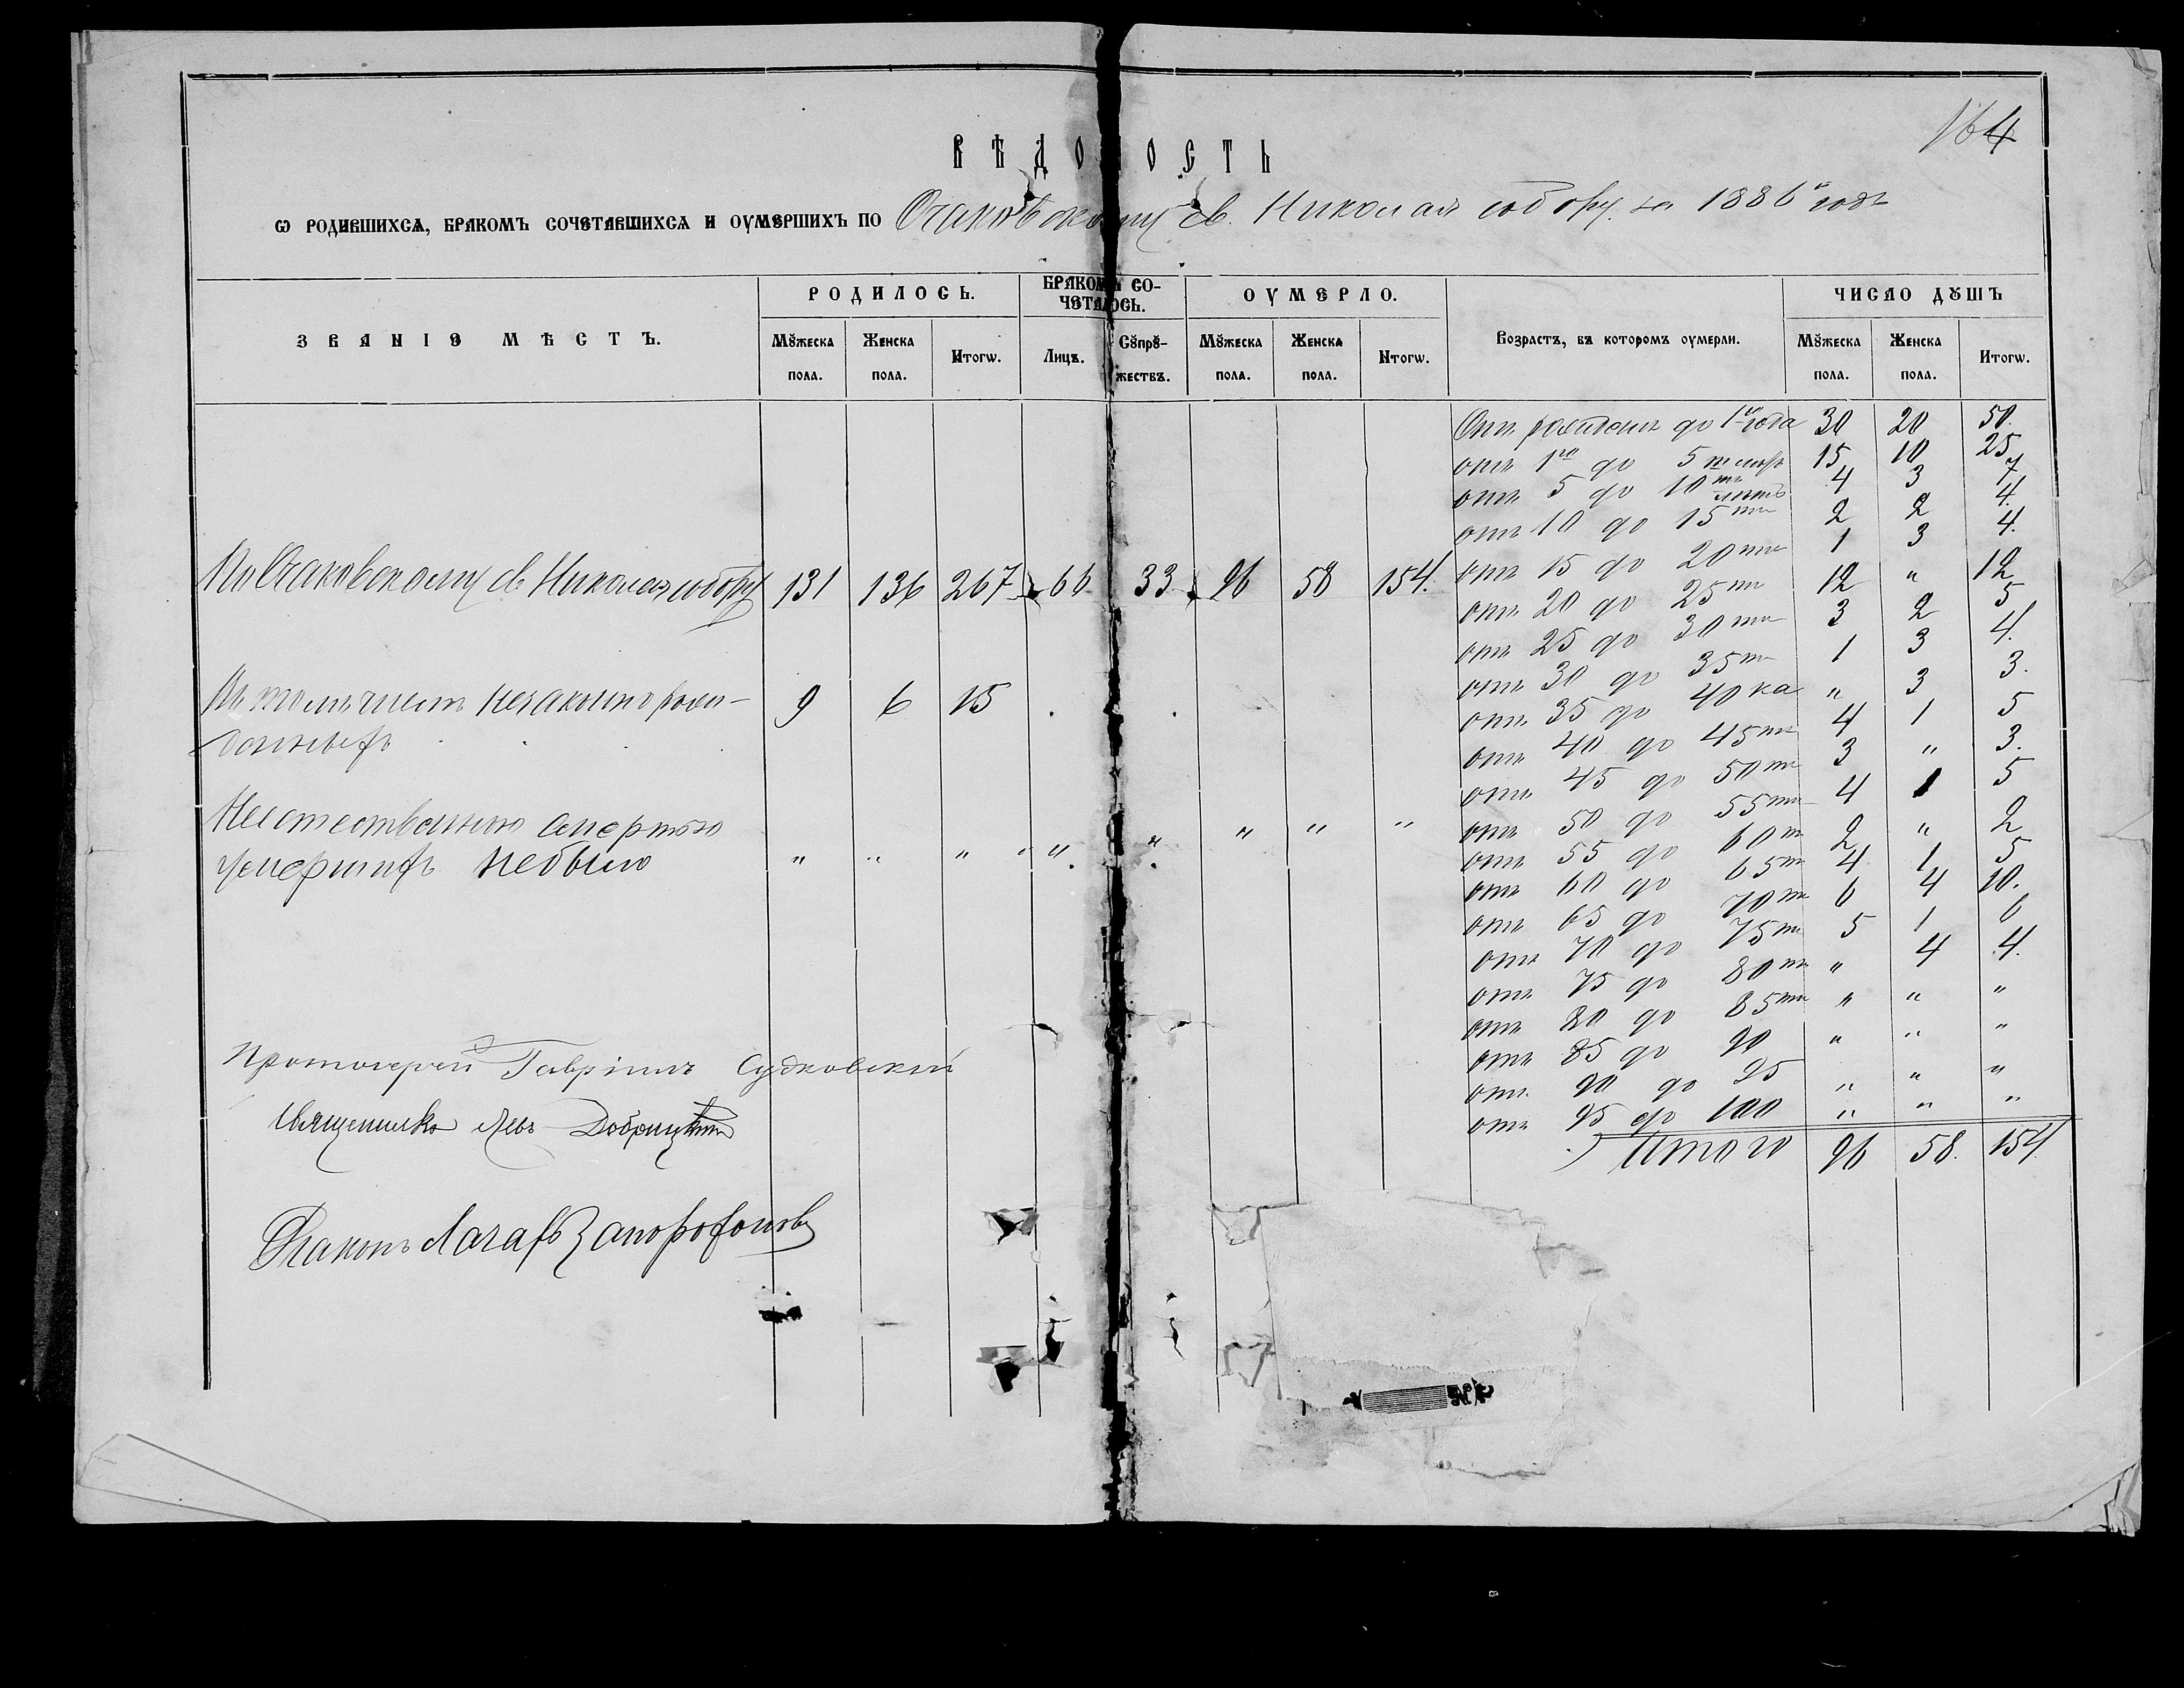 164
ВѢДОМОСТЬ
Ѡ РОДИВШИХСѦ, БРАКОМЪ СОЧЕТАВШИХСѦ И ОУМЕРШИХЪ ПО Очаковскому св. Николая собору за 1886й годъ
ЗВАНІЕ МѢСТЪ. РОДИЛОСЬ. БРАКОМЪ СО- ОУМЕРЛО. Возрастъ, въ которомъ оумерли. ЧИСЛО ДꙊШЪ
ЧЕТАЛОСЬ.
Мꙋжеска Женска Итогѡ. Лицъ. Сꙋпрꙋ- Мꙋжеска Женска Итогѡ. Мꙋжеска Женска Итогѡ.
пола. пола. жествъ. пола. пола. пола. пола.
Отъ рожденія до 1го года 30 20 50.
отъ 1го до 5ти лѣтъ 15 10 25
отъ 5 до 10ти лѣтъ 4 3 7
отъ 10 до 15ти 2 2 4.
отъ 15 до 20ти 1 3 4.
По Очаковскому св Николая собору 131 136 267 66 33 96 58 154.
отъ 20 до 25ти 12 " 12
отъ 25 до 30ти 3 2 5
отъ 30 до 35ти 1 3 4.
Въ томъ числѣ незаконнорож- 9 6 15
денныхъ
отъ 35 до 40ка " 3 3.
отъ 40 до 45ти 4 1 5
отъ 45 до 50ти 3 " 3.
отъ 50 до 55ти 4 1 5
Неестественною смертью
умершихъ небыло " " " " " " " "
отъ 55 до 60ти 2 " 2
отъ 60 до 65ти 4 1 5
отъ 65 до 70ти 6 4 10.
отъ 70 до 75ти 5 1 6
отъ 75 до 80ти " 4 4.
отъ 80 до 85ти " " "
отъ 85 до 90 " " "
отъ 90 до 95 " " "
отъ 95 до 100 " " "
Итого 96 58. 154.
Протоіерей Гавріилъ Судковскій
Священникъ Левъ Добрицкій
Діаконъ